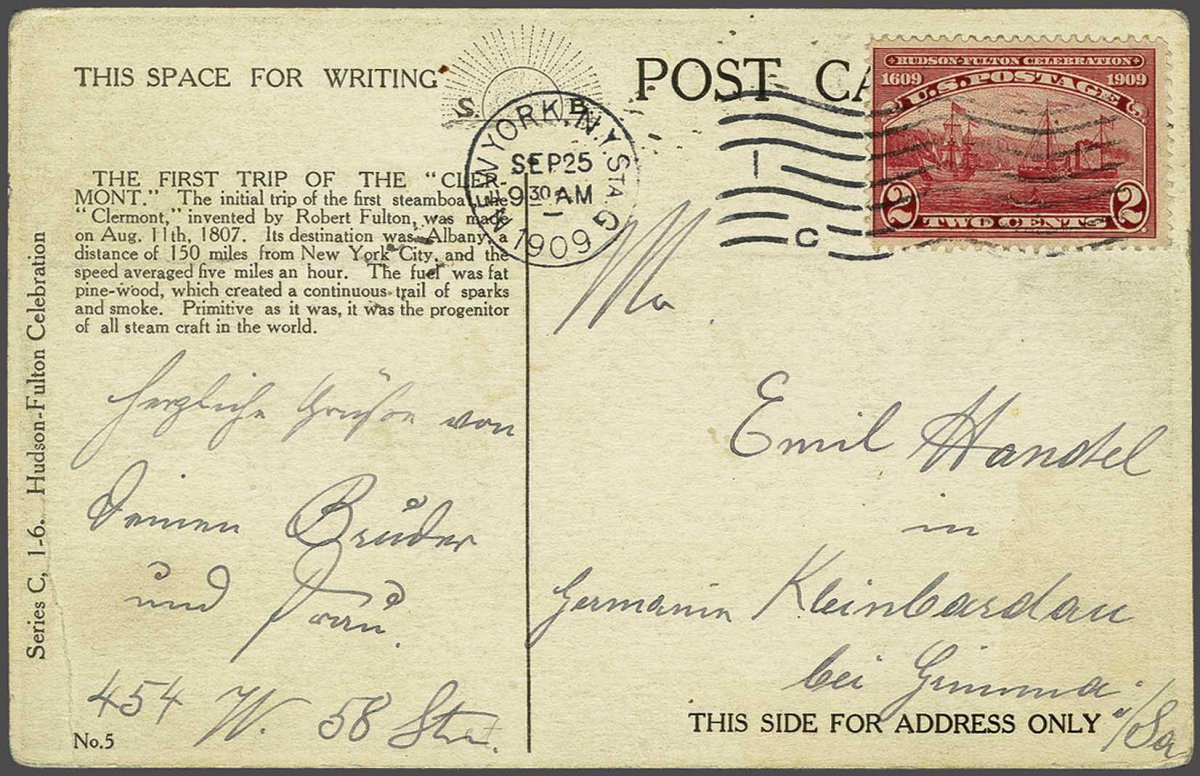 THIS SPACE FOR WRITING
S. B.
POST CA
HUDSON-FULTON CELEBRATION
1609 1909
U.S. POSTAGE
2 2
TWO CENTS
NEW YORK, N.Y. STA. G
SEP 25
9 30 AM
1909
C
THE FIRST TRIP OF THE "CLER-
MONT." The initial trip of the first steamboat, the
"Clermont," invented by Robert Fulton, was made
on Aug. 11th, 1807. Its destination was Albany, a
distance of 150 miles from New York City, and the
speed averaged five miles an hour. The fuel was fat
pine-wood, which created a continuous trail of sparks
and smoke. Primitive as it was, it was the progenitor
of all steam craft in the world.
Series C, 1-6. Hudson-Fulton Celebration
herzliche Grüße von
Deinen Bruder
und Frau.
454 W. 58 Str.
No. 5
Emil Handel
in
Germanien Kleinbardau
bei Grimma
i/Sa
THIS SIDE FOR ADDRESS ONLY